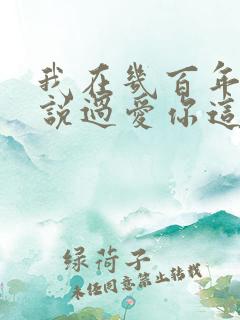 我在幾百年
說過愛你這
绿荷子
未经同意禁止转载